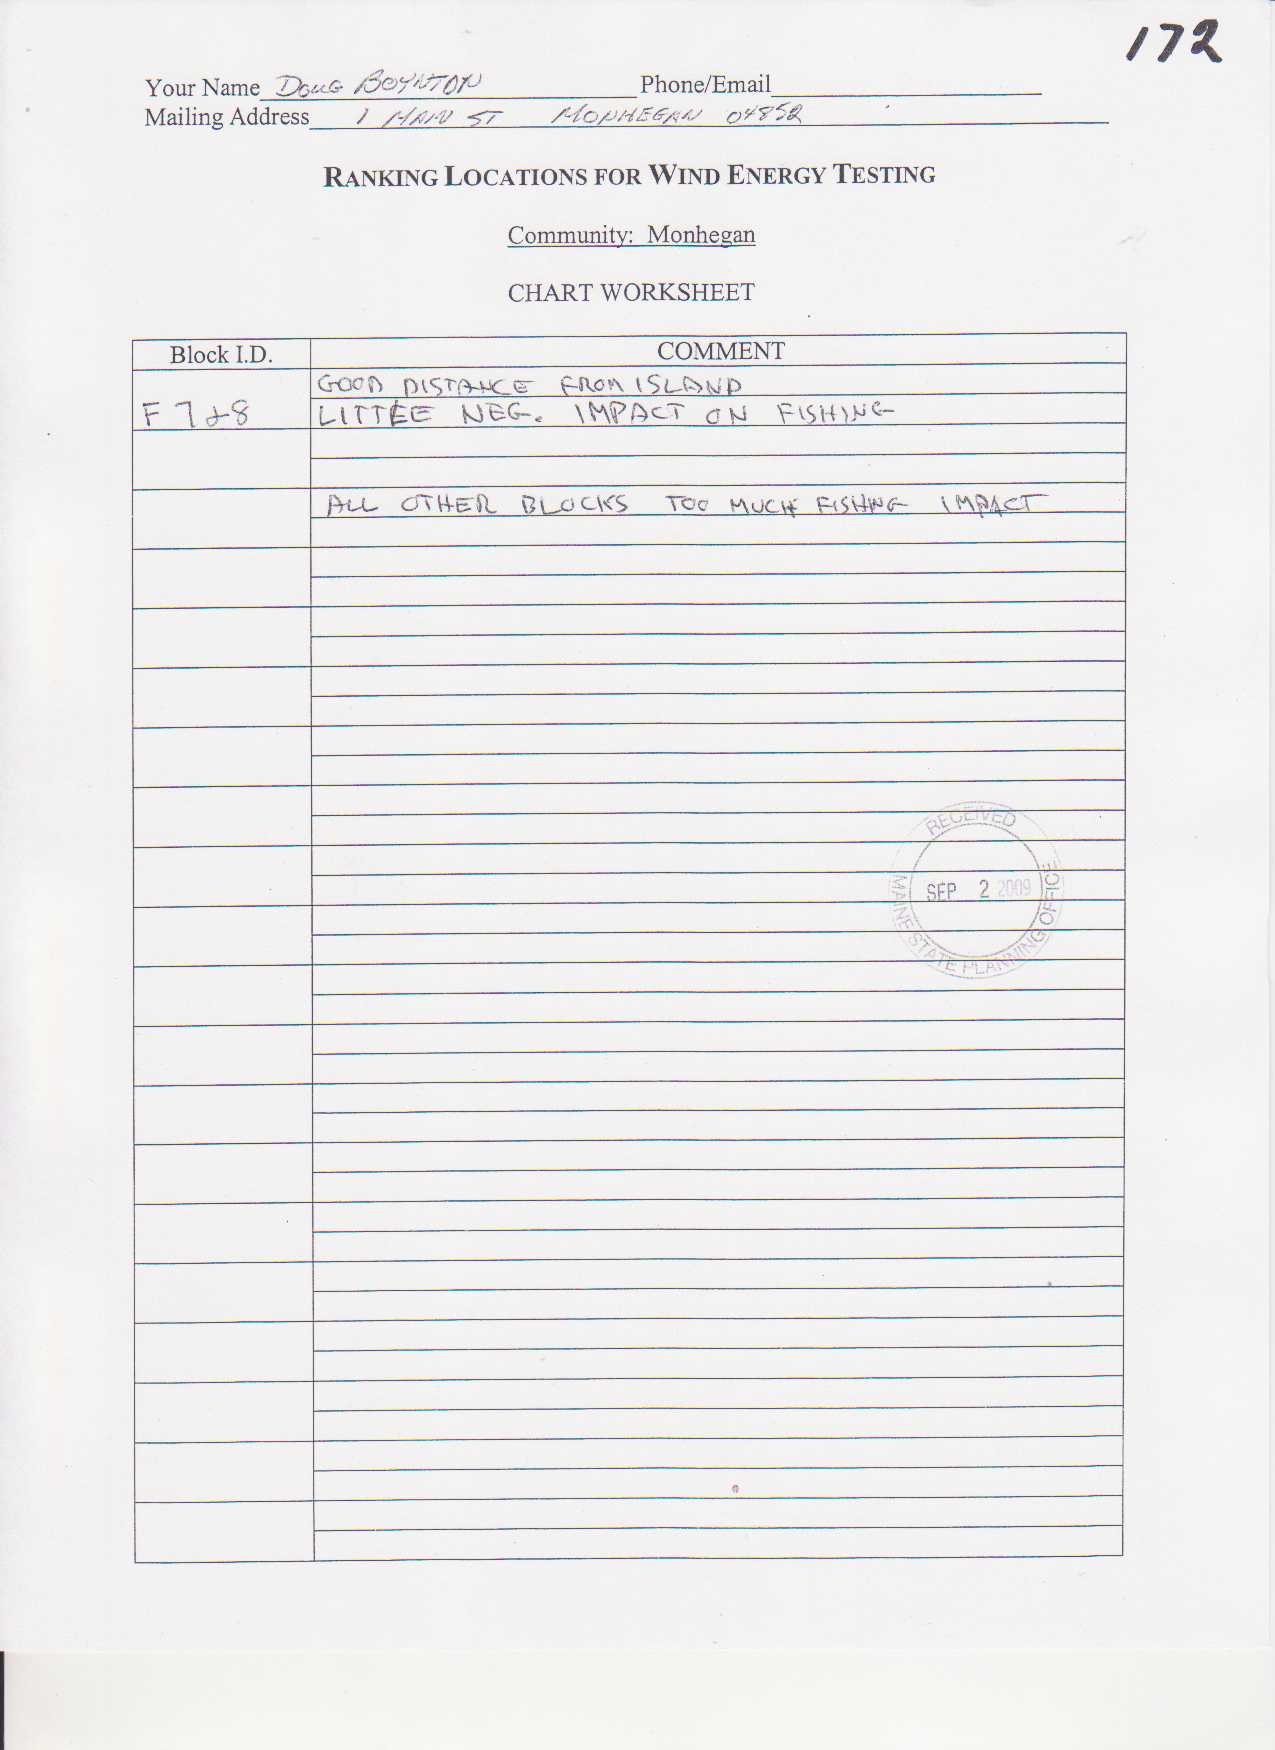 172
Your Name Doug Boynton Phone/Email
Mailing Address 1 Main St Monhegan 04852
RANKING LOCATIONS FOR WIND ENERGY TESTING
Community: Monhegan
CHART WORKSHEET
Block I.D. COMMENT
GOOD DISTANCE FROM ISLAND
F 7 & 8 LITTLE NEG. IMPACT ON FISHING
ALL OTHER BLOCKS TOO MUCH FISHING IMPACT
RECEIVED
SEP 2 2009
MAINE STATE PLANNING OFFICE